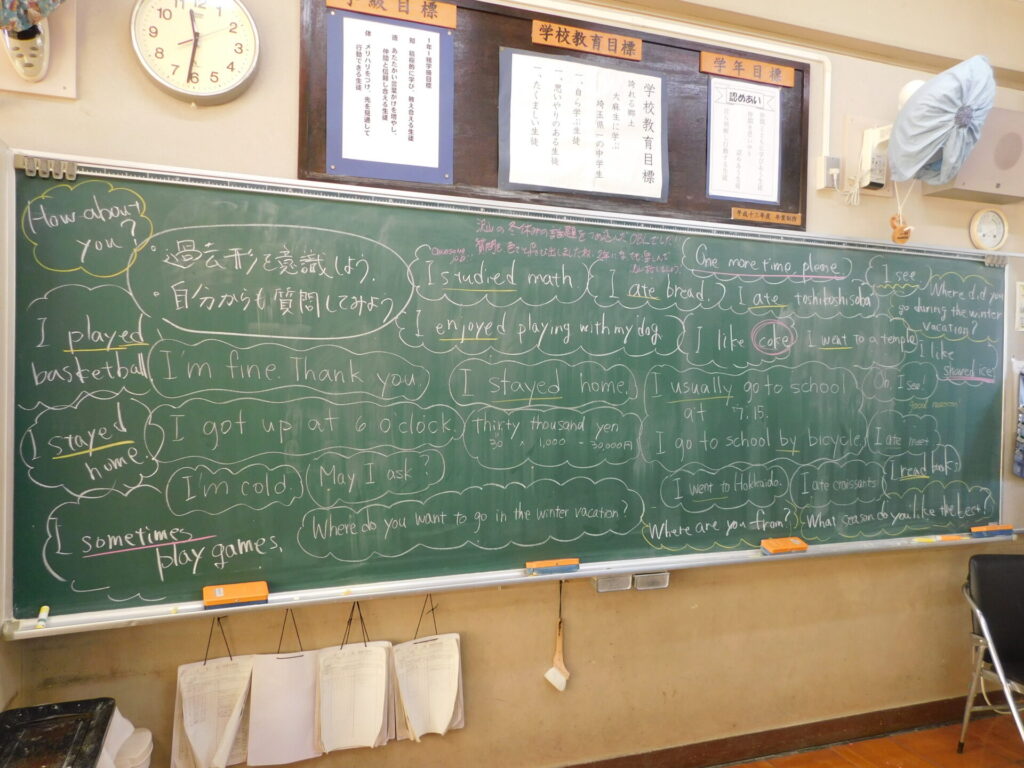 学級目標
1年1組学級目標
知 積極的に学び、教え合える生徒
徳 あたたかい言葉かけを増やし、
仲間と信頼し合える生徒
体 メリハリをつけ、先を見通して
行動できる生徒
学校教育目標
学校教育目標
誇れる郷土
大麻生に学ぶ
埼玉県一の中学生
一、自ら学ぶ生徒
一、思いやりのある生徒
一、たくましい生徒
学年目標
認めあい
平成十二年度 卒業制作
How about
you?
・過去形を意識しよう.
・自分からも質問してみよう
I played
basketball
I stayed
home.
I sometimes
play games.
I studied math
I ate bread.
I enjoyed playing with my dog.
I'm fine. Thank you.
I stayed home.
I got up at 6 o'clock.
Thirty thousand yen
30 × 1,000 = 30,000円
I'm cold.
May I ask?
Where do you want to go in the winter vacation?
One more time please.
I ate toshikoshisoba
I like coke
I went to a temple
I usually go to school
at 7:15.
I go to school by bicycle.
I went to Hokkaido.
I ate croissants
Where are you from?
What season do you like the best?
I see
Where did you
go during the winter
vacation?
I like
shaved ice!
Oh, I see!
I ate
I read books